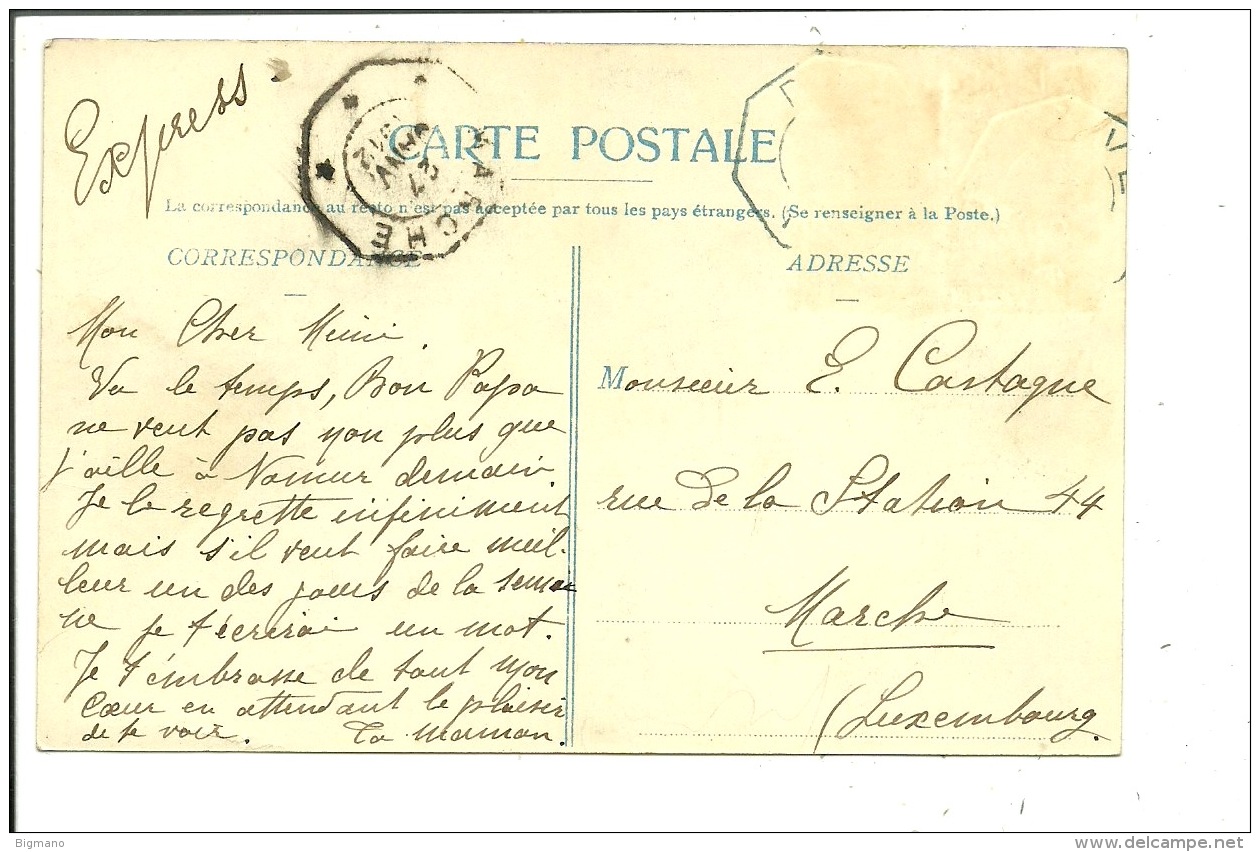 Express
CARTE POSTALE
MARCHE
La correspondance au recto n'est pas acceptée par tous les pays étrangers. (Se renseigner à la Poste.)
CORRESPONDANCE
Mon Cher Mimi.
Vu le temps, Bon Papa
ne veut pas non plus que
j'aille à Namur demain
Je le regrette infiniment
mais s'il veut faire meil-
leur un des jours de la semai
ne je t'écrirai un mot.
Je t'embrasse de tout mon
Cœur en attendant le plaisir
de te voir. Ta Maman.
ADRESSE
Monsieur E. Castagne
rue de la Station 44
Marche
(Luxembourg.
Bigmano
delcampe.net